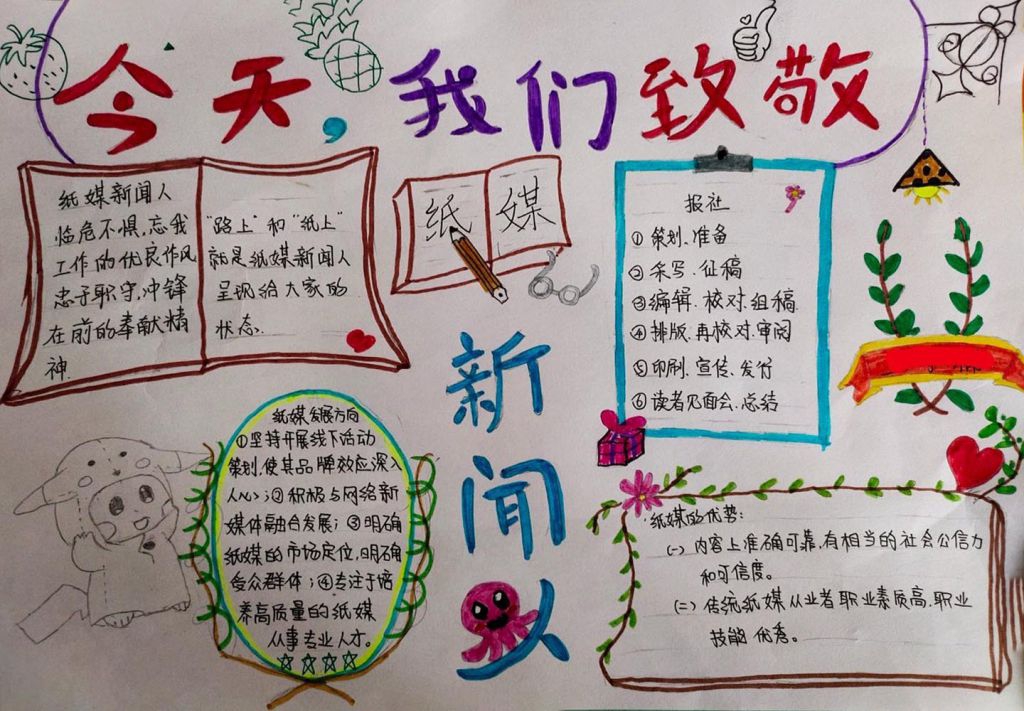 今天,我们致敬
纸媒新闻人
临危不惧、忘我
工作的优良作风
忠于职守、冲锋
在前的奉献精
神.
“路上”和“纸上”
就是纸媒新闻人
呈现给大家的
状态.
纸媒
新闻人
报社
① 策划、准备
② 采写、征稿
③ 编辑、校对、组稿
④ 排版、再校对、审阅
⑤ 印刷、宣传、发行
⑥ 读者见面会、总结
纸媒发展方向
①坚持开展线下活动
策划,使其品牌效应深入
人心;②积极与网络新
媒体融合发展;③明确
纸媒的市场定位,明确
受众群体;④专注于培
养高质量的纸媒
从事专业人才。
纸媒的优势:
(一) 内容上准确可靠,有相当的社会公信力
和可信度。
(二) 传统纸媒从业者职业素质高,职业
技能优秀。